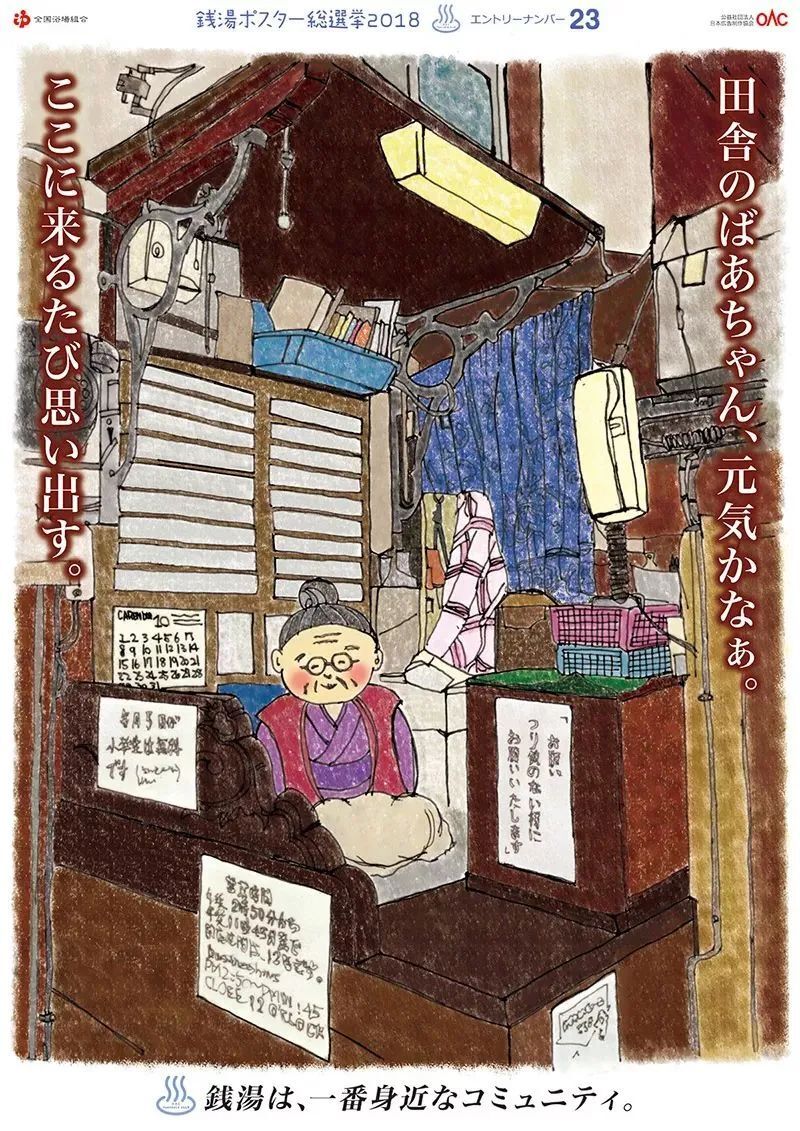 全国浴場組合
銭湯ポスター総選挙2018
エントリーナンバー 23
公益社団法人
日本広告制作協会
OAC
田舎のばあちゃん、元気かなぁ。
ここに来るたび思い出す。
10
1 2 3 4 5 6 7
8 9 10 11 12 13 14
15 16 17 18 19 20 21
22 23 24 25 26 27 28
29 30 31
です
「お願い
つり銭のない様に
お願いいたします」
営業時間
午後2時50分から
午後11時45分まで
銭湯は、一番身近なコミュニティ。